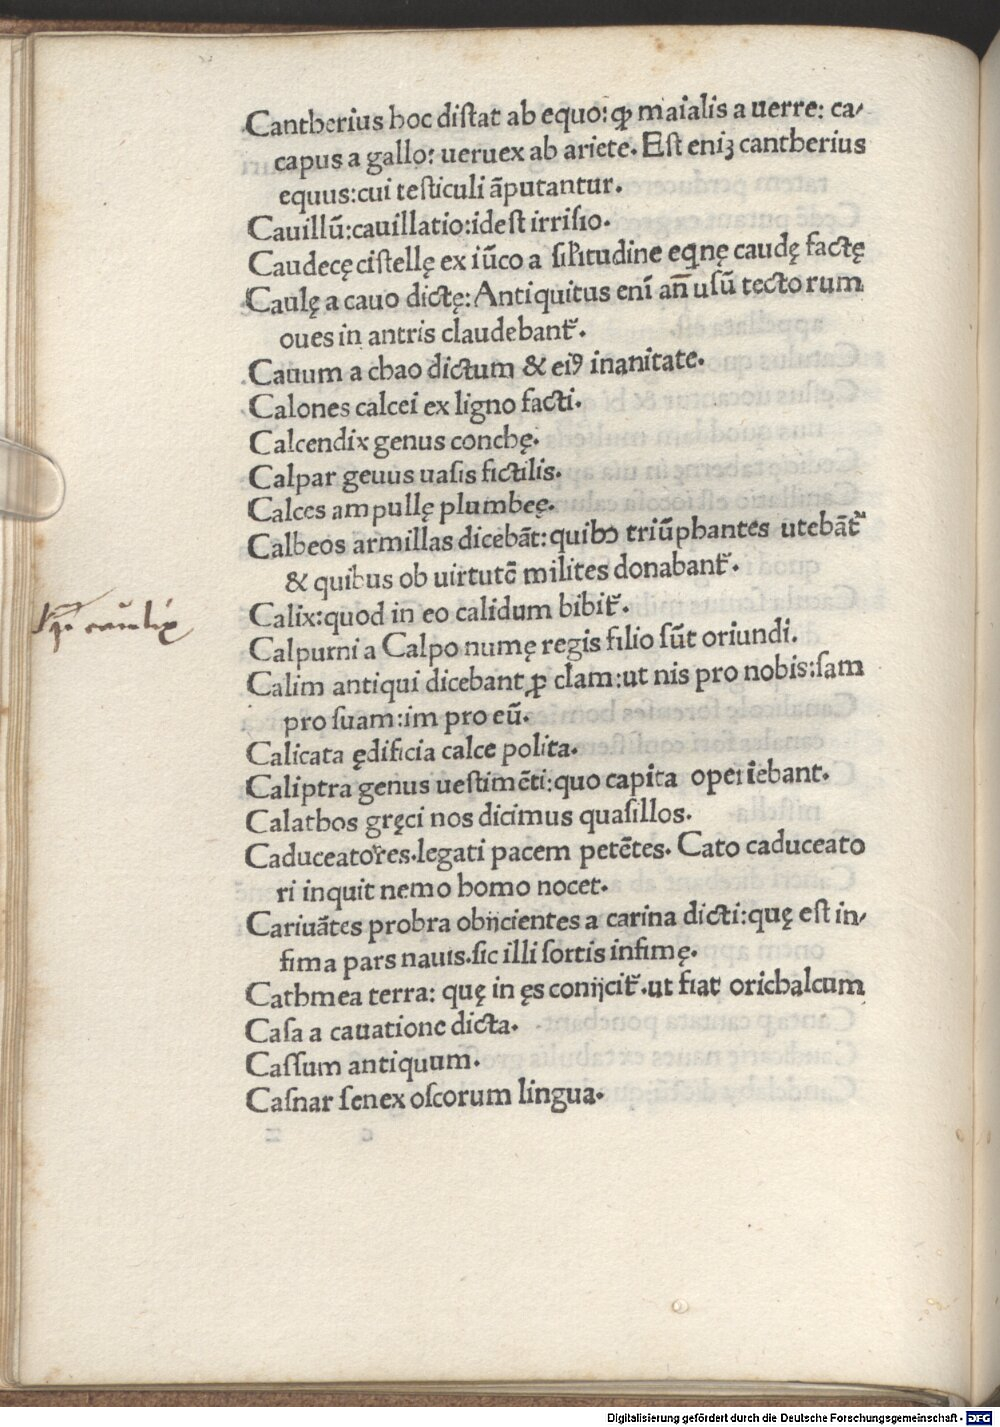 Cantherius hoc distat ab equo: ꝙ maialis a uerre: ca/
capus a gallo: ueruex ab ariete. Est eniꝫ cantherius
equus: cui testiculi āputantur.
Cauillū: cauillatio: idest irrisio.
Caudecę cistellę ex iūco a sil'itudine eqnę caudę factę
Caulę a cauo dictę: Antiquitus enī an̄ usū tectorum
oues in antris claudebant᷑.
Cauum a chao dictum & eiꝰ inanitate.
Calones calcei ex ligno facti.
Calcendix genus conchę.
Calpar geuus uasis fictilis.
Calces ampullę plumbeę.
Calbeos armillas dicebāt: quibꝰ triūphantes utebāt᷑
& quibus ob uirtutē milites donabant᷑.
Calix: quod in eo calidum bibit᷑.
Calpurni a Calpo numę regis filio sūt oriundi.
Calim antiqui dicebant ꝓ clam: ut nis pro nobis: sam
pro suam: im pro eū.
Calicata ędificia calce polita.
Caliptra genus uestimēti: quo capita operiebant.
Calathos gręci nos dicimus quasillos.
Caduceatores. legati pacem petētes. Cato caduceato
ri inquit nemo homo nocet.
Cariuātes probra obijcientes a carina dicti: quę est in/
fima pars nauis. sic illi sortis infimę.
Cathmea terra: quę in ęs conijcit᷑. ut fiat orichalcum
Casa a cauatione dicta.
Cassum antiquum.
Casnar senex oscorum lingua.
Digitalisierung gefördert durch die Deutsche Forschungsgemeinschaft - DFG